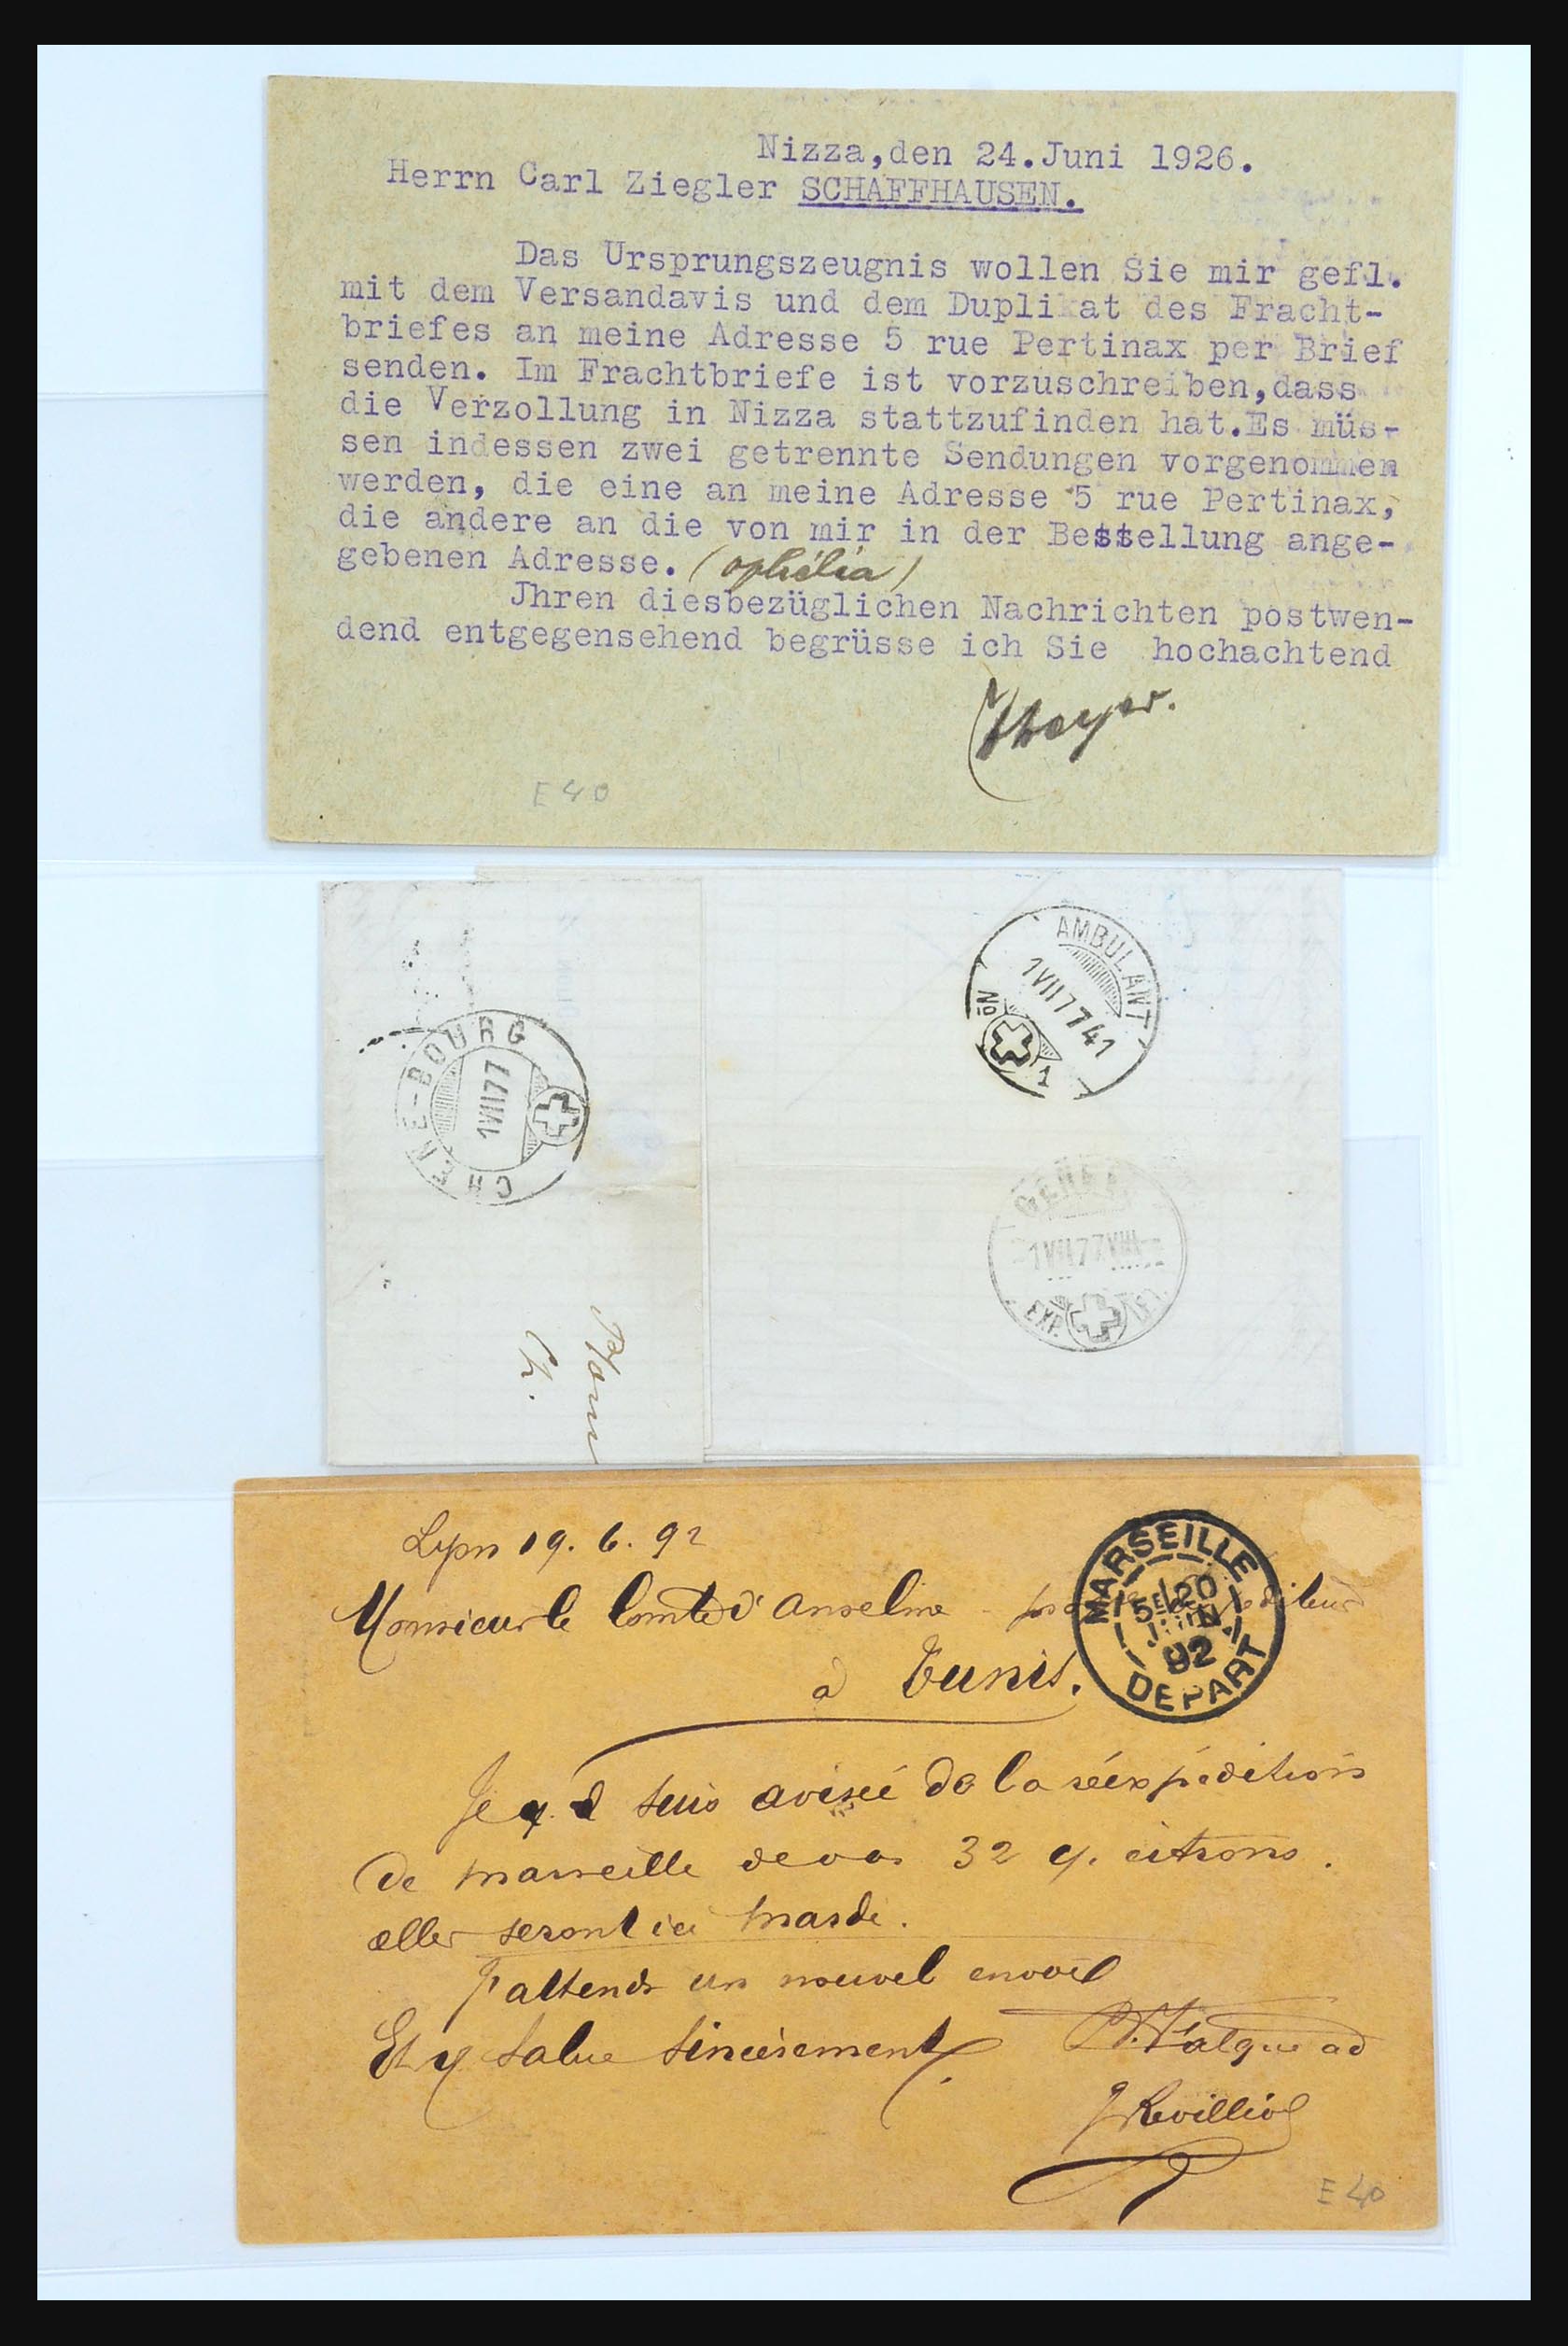 Nizza,den 24.Juni 1926.
Herrn Carl Ziegler SCHAFFHAUSEN.
Das Ursprungszeugnis wollen Sie mir gefl.
mit dem Versandavis und dem Duplikat des Fracht-
briefes an meine Adresse 5 rue Pertinax per Brief
senden. Im Frachtbriefe ist vorzuschreiben,dass
die Verzollung in Nizza stattzufinden hat.Es müs-
sen indessen zwei getrennte Sendungen vorgenommen
werden, die eine an meine Adresse 5 rue Pertinax,
die andere an die von mir in der Bestellung ange-
gebenen Adresse. (ophélia)
Jhren diesbezüglichen Nachrichten postwen-
dend entgegensehend begrüsse ich Sie hochachtend
E 40
AMBULANT
1 VII 77 41
No 1
CHENE-BOURG
1 VII 77
GENEV
1 VII 77 VIII
EXP. LET.
Lyon 19. 6. 92
Monsieur le Comte d'Anselme
à Tunis.
MARSEILLE
5E 20
JUIN
92
DEPART
Je suis avisé de la réexpédition
de Marseille de vos 32 q. citrons.
elles seront ici mardi.
J'attends un nouvel envoi
Et salue sincèrement
J Revilliod
E 40